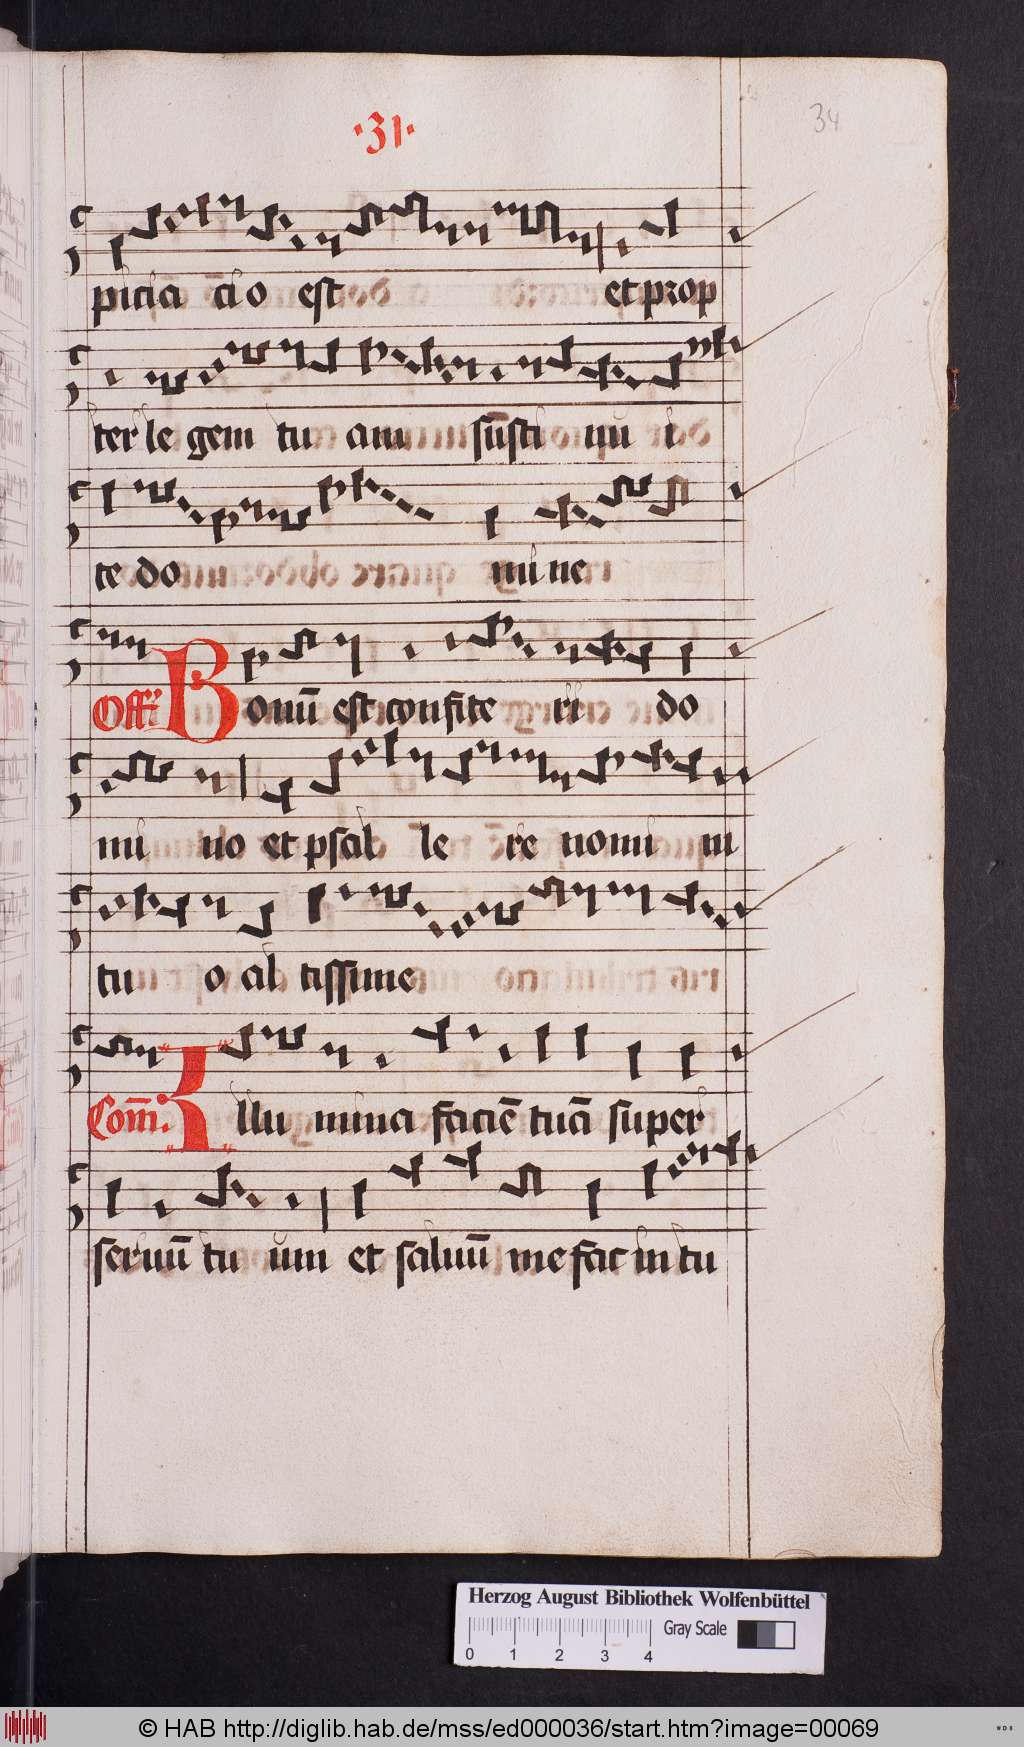 ·31·
34
picia cio est et prop
ter le gem tu am sūsti nu i
te do mi ne
Off: Bonū est confite ri do
mi no et psal le re nomi ni
tu o al tissime
Com̄. Illu mina faciē tuā super
seruū tu um et saluū me fac in tu
Herzog August Bibliothek Wolfenbüttel
Gray Scale
0 1 2 3 4
© HAB http://diglib.hab.de/mss/ed000036/start.htm?image=00069